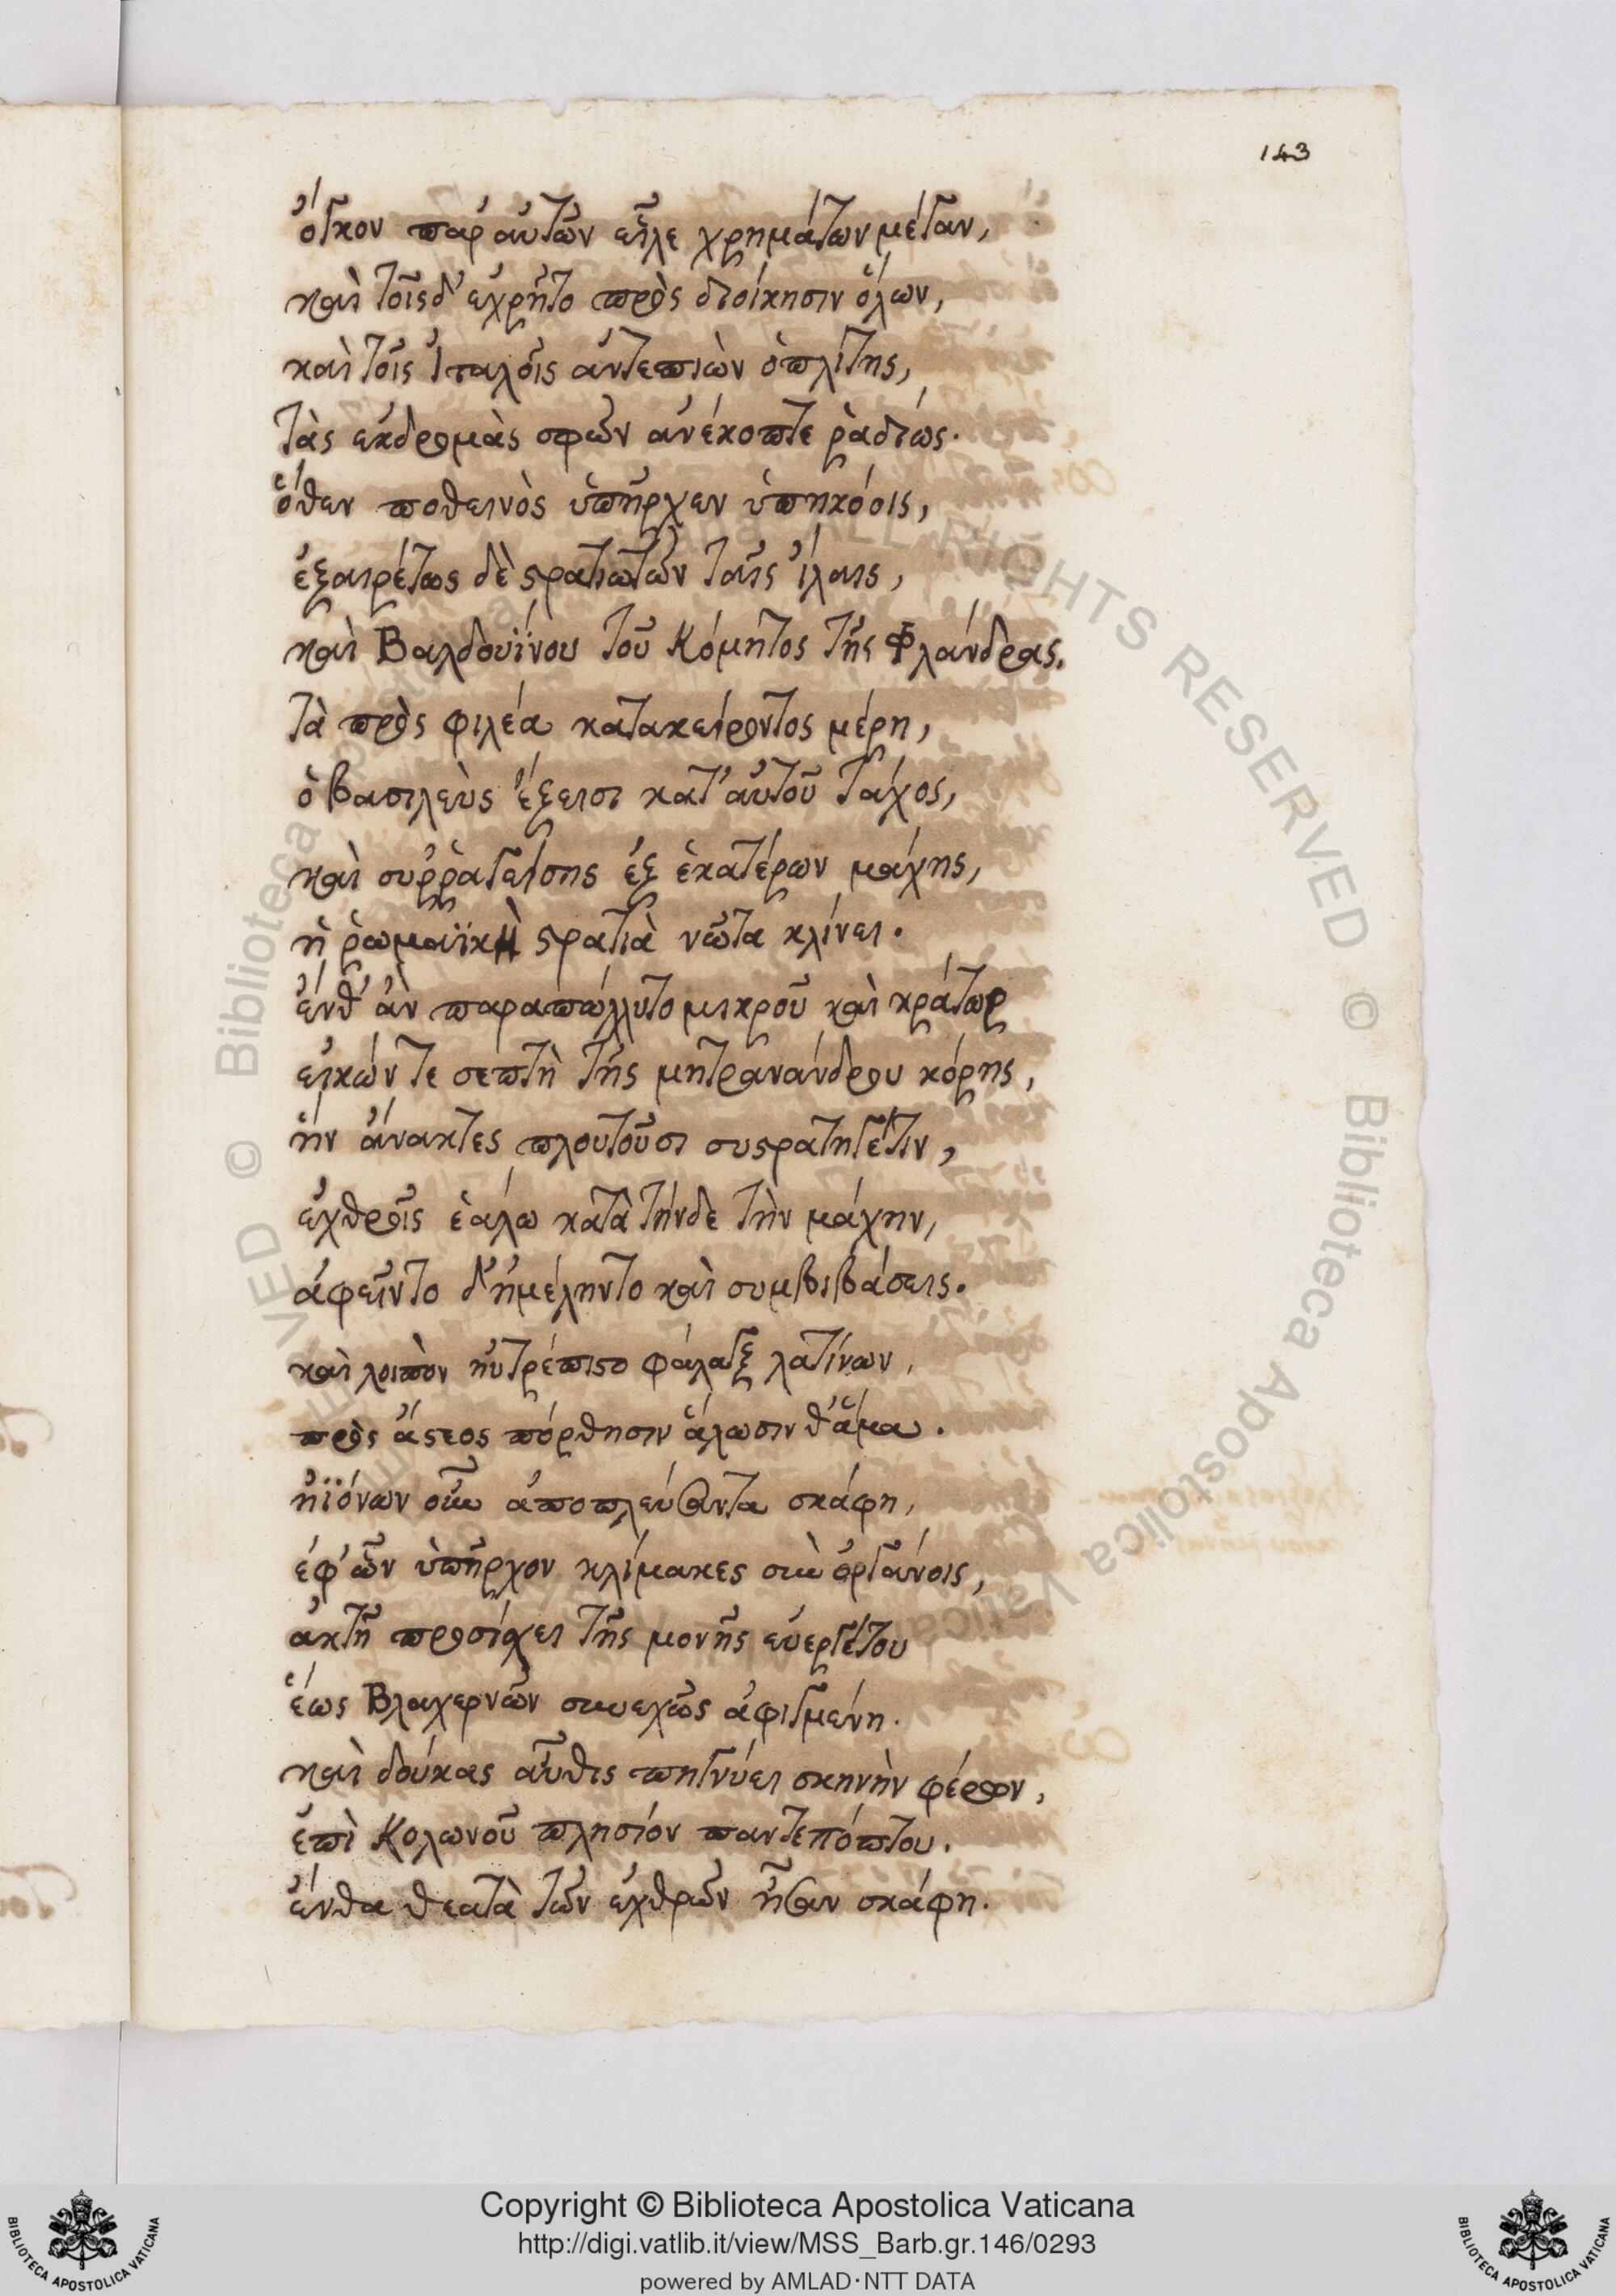 143
ὄγκον παρ' αὐτῶν εἷλε χρημάτων μέγαν,
καὶ τοῖς δ' ἐχρῆτο πρὸς διοίκησιν ὅλων,
καὶ τοῖς Ἰταλοῖς ἀντεπιὼν ὁπλίτης,
τὰς ἐκδρομὰς σφῶν ἀνέκοπτε ῥαδίως.
ὅθεν ποθεινὸς ὑπῆρχεν ὑπηκόοις,
ἐξαιρέτως δὲ στρατιωτῶν ταῖς ἴλαις,
καὶ Βαλδουΐνου τοῦ Κόμητος τῆς Φλάνδρας,
τὰ πρὸς φιλέα κατακείροντος μέρη,
ὁ βασιλεὺς ἔξεισι κατ' αὐτοῦ τάχος,
καὶ συῤῥαγείσης ἐξ ἑκατέρων μάχης,
ἡ ῥωμαϊκὴ στρατιὰ νῶτα κλίνει.
ἔνθ' ἂν παραπώλλυτο μικροῦ καὶ κράτωρ
εἰκών τε σεπτὴ τῆς μητρανάνδρου κόρης,
ἣν ἄνακτες πλουτοῦσι συστρατηγέτιν,
ἐχθροῖς ἑάλω κατὰ τήνδε τὴν μάχην,
ἀφεῖντο δ' ἠμέληντο καὶ συμβιβάσεις.
καὶ λοιπὸν ηὐτρέπιστο φάλαγξ λατίνων,
πρὸς ἄστεος πόρθησιν ἅλωσιν θ' ἅμα.
ἠϊόνων οὖν ἀποπλεύσαντα σκάφη,
ἐφ' ὧν ὑπῆρχον κλίμακες σὺν ὀργάνοις,
ἀκτῇ προσίσχει τῆς μονῆς εὐεργέτου
ἕως Βλαχερνῶν συνεχῶς ἀφιγμένη.
καὶ δούκας αὖθις πηγνύει σκηνὴν φέρων,
ἐπὶ Κολωνοῦ πλησίον παντεπόπτου.
ἔνθα θεατὰ τῶν ἐχθρῶν ἦσαν σκάφη.
© Biblioteca Apostolica Vaticana ALL RIGHTS RESERVED © Biblioteca Apostolica Vaticana
Copyright © Biblioteca Apostolica Vaticana
http://digi.vatlib.it/view/MSS_Barb.gr.146/0293
powered by AMLAD·NTT DATA
BIBLIOTECA APOSTOLICA VATICANA
BIBLIOTECA APOSTOLICA VATICANA